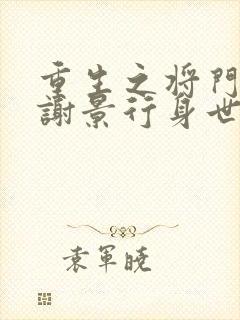 重生之将門
謝景行身世
袁軍曉